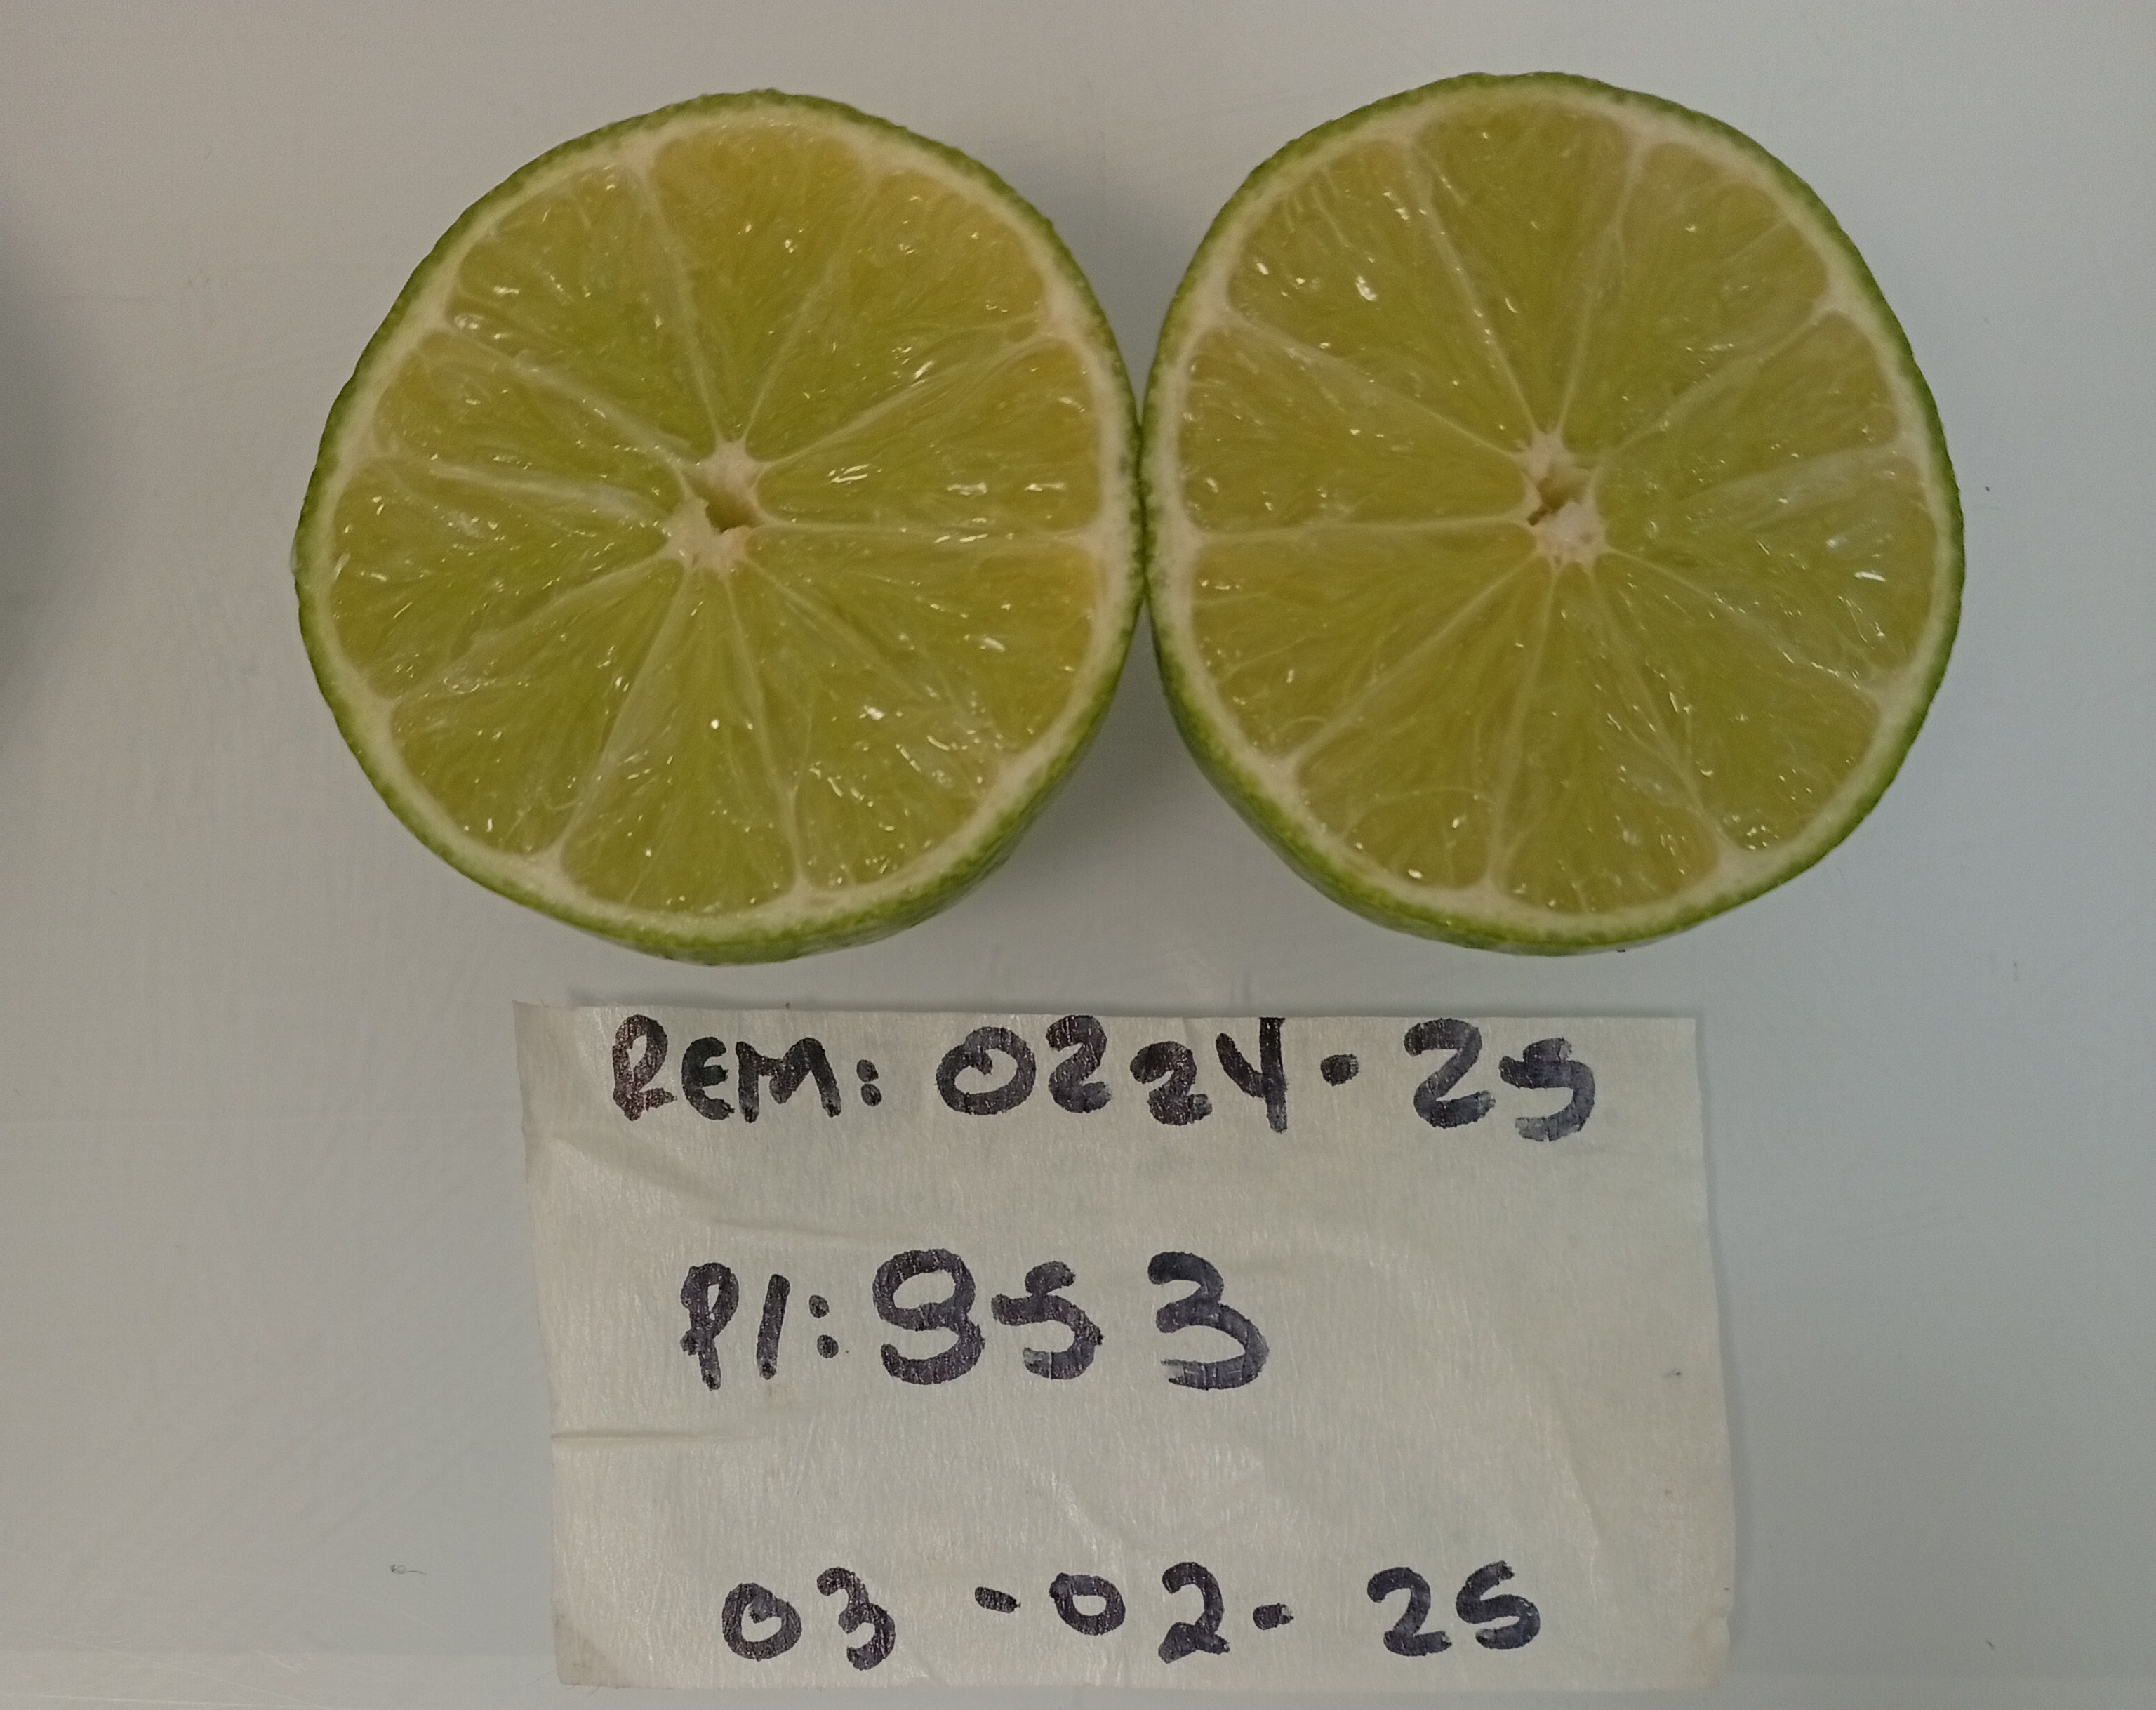 REM: 0224-25
PI: 953
03-02-25